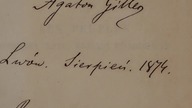 Agaton Giller
Lwów. Sierpień. 1874.